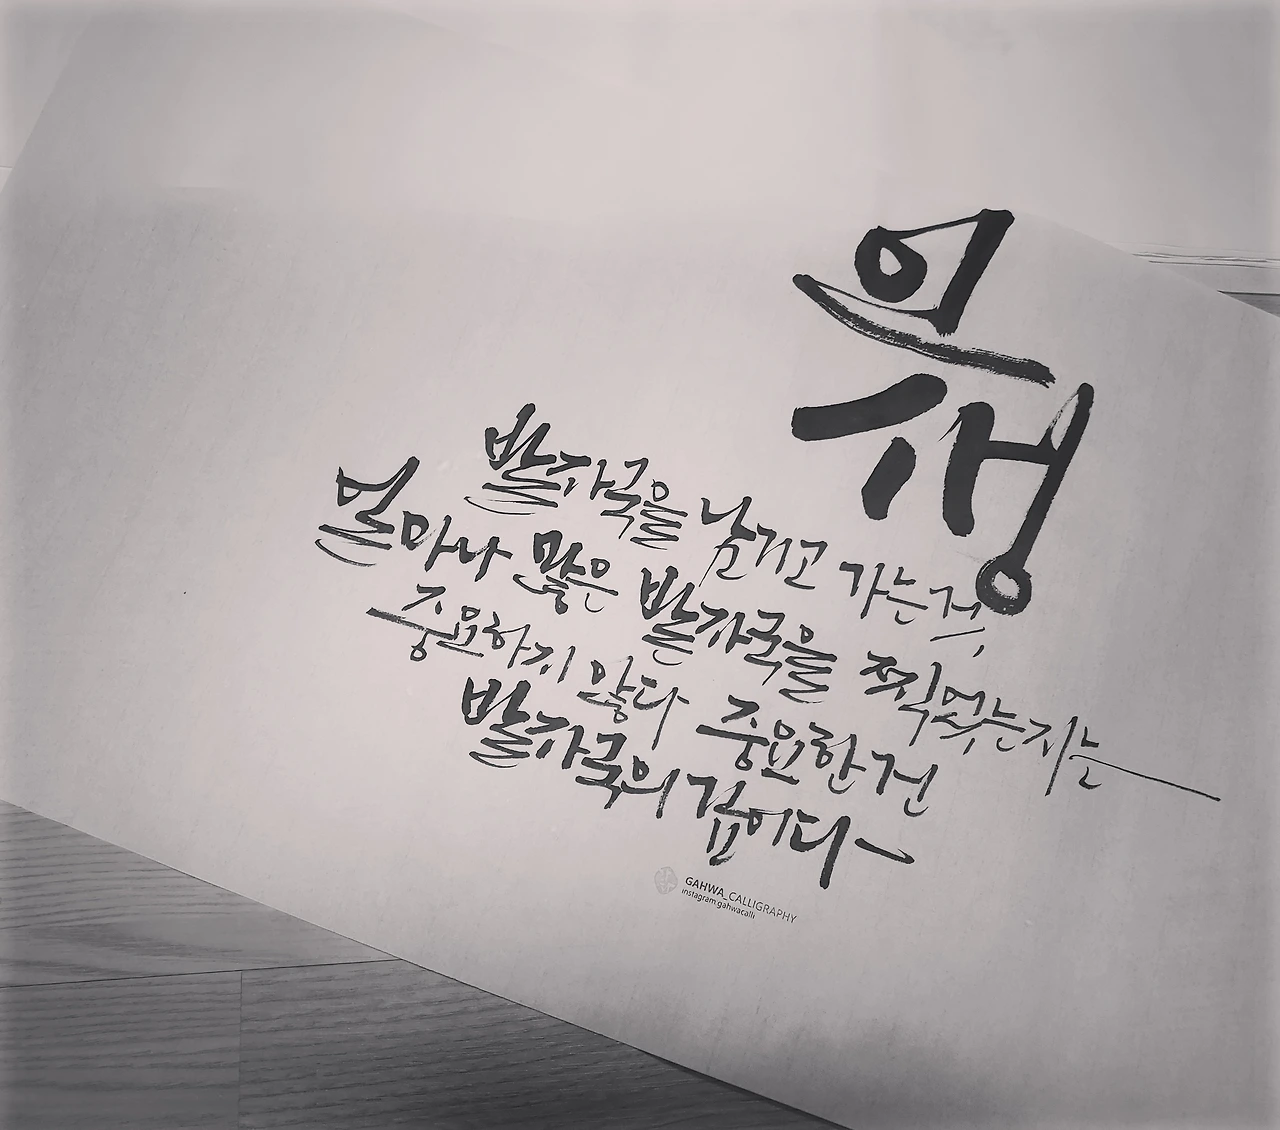 인생
발자국을 남기고 가는 것,
얼마나 많은 발자국을 찍었는지는
중요하지 않다 중요한 건
발자국의 깊이다
GAHWA_CALLIGRAPHY
instagram.gahwacalli